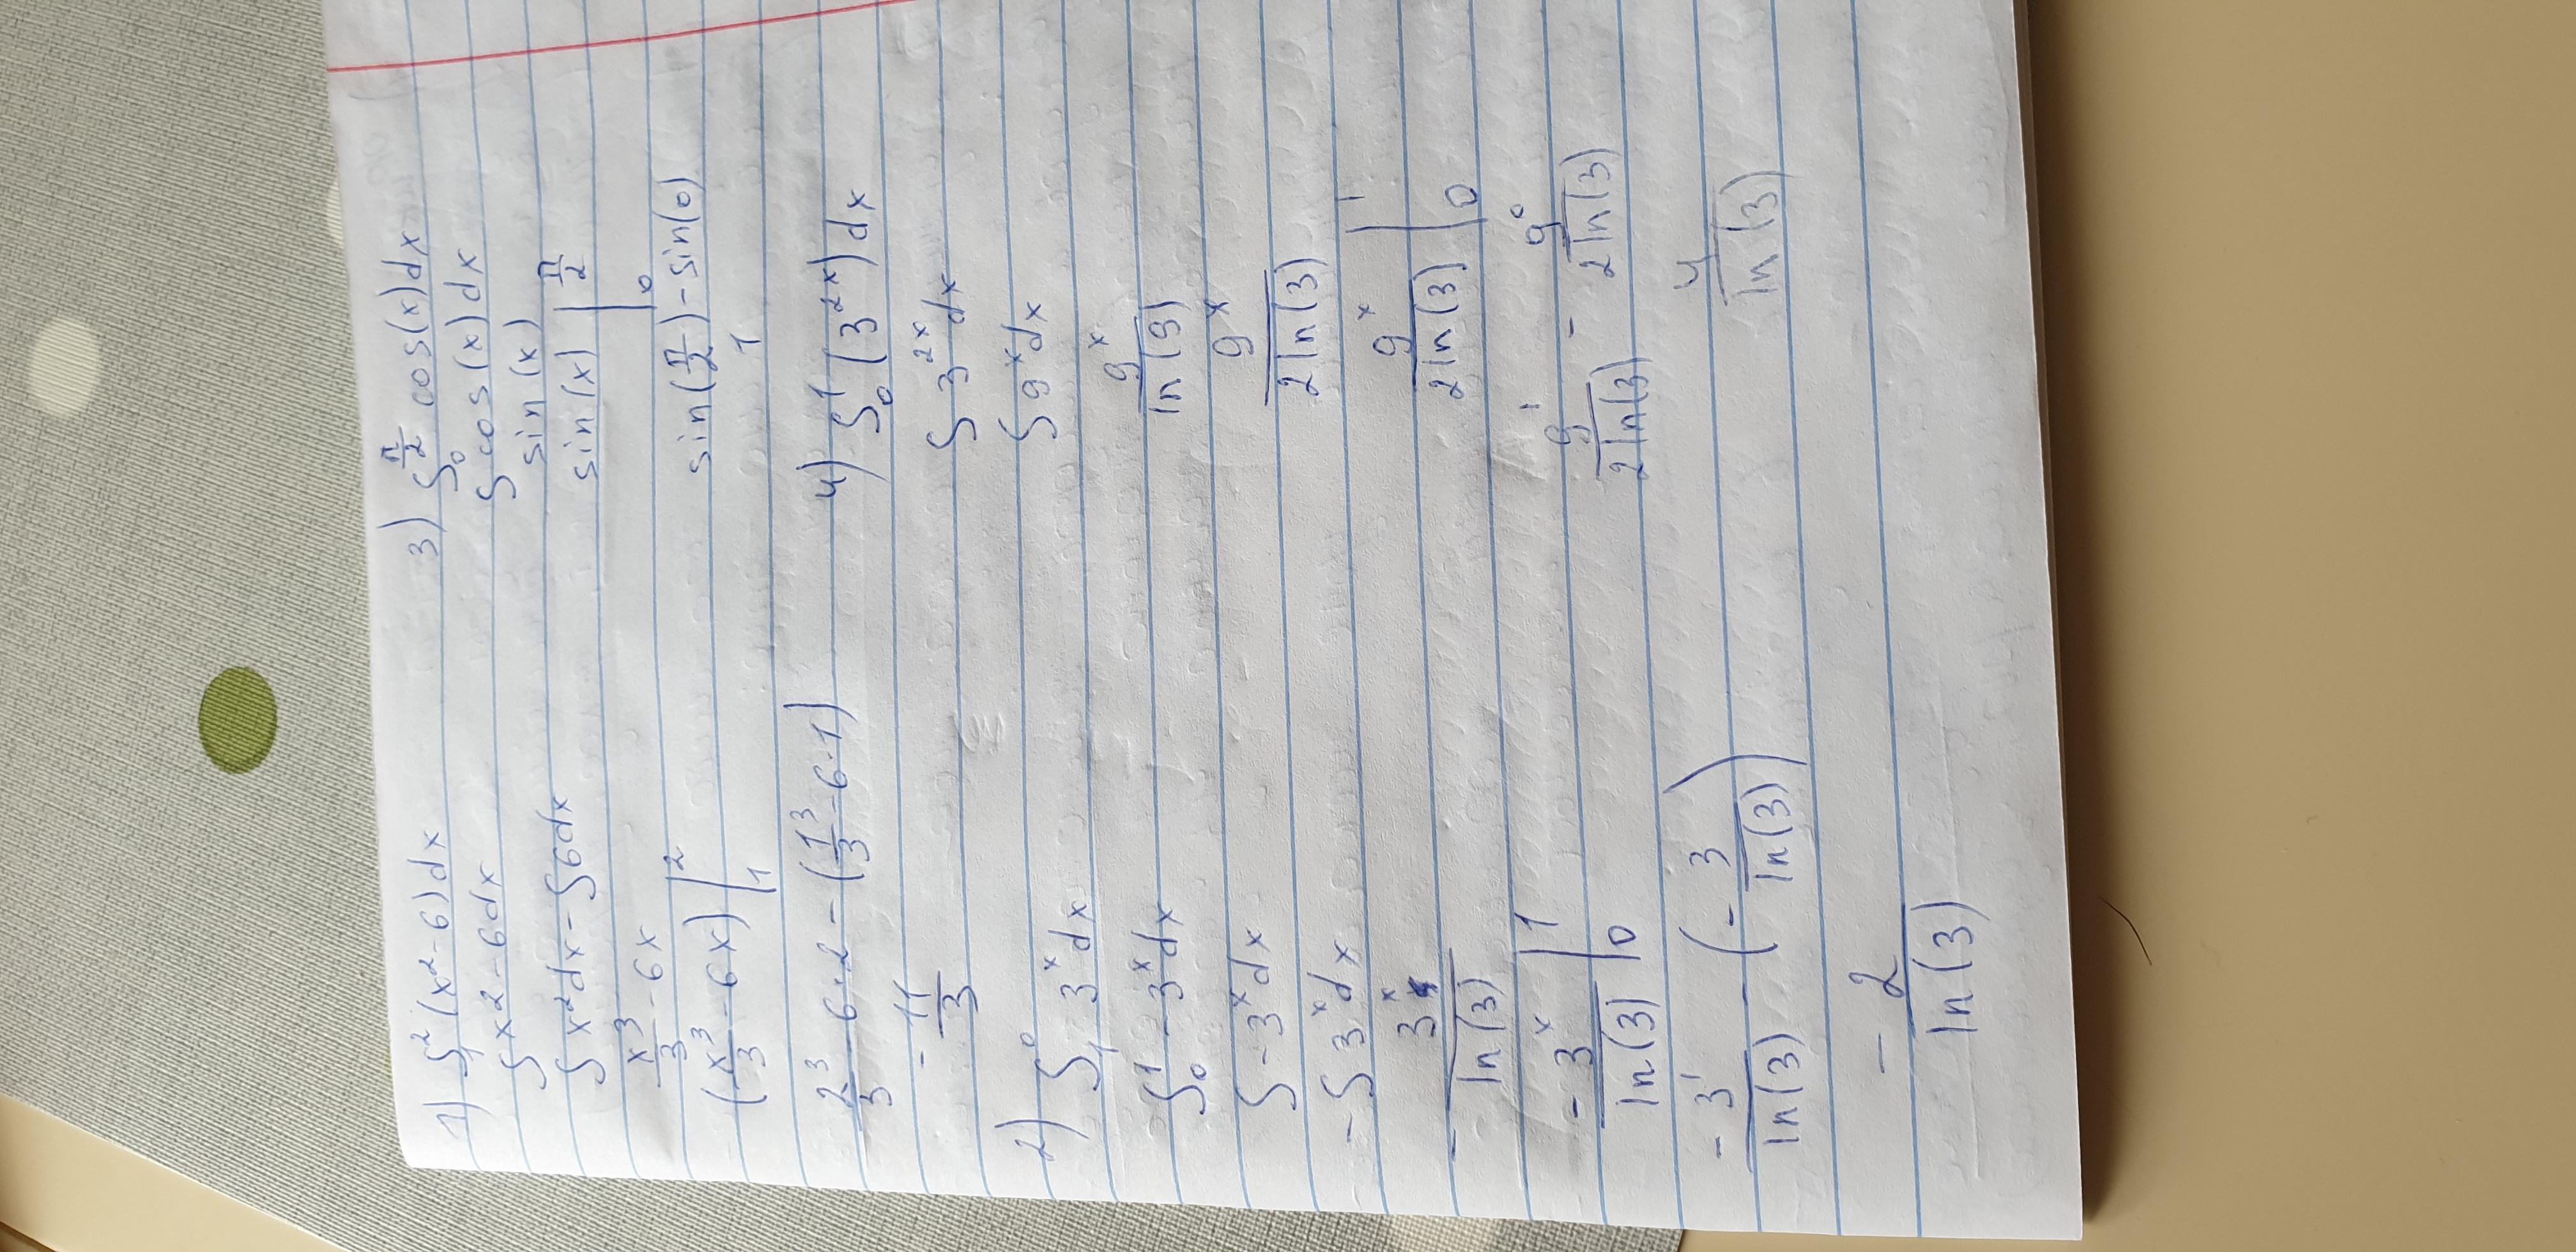 1) ∫₁² (x²-6)dx
∫x²-6dx
∫x²dx-∫6dx
x³/3 - 6x
(x³/3 - 6x)|₁²
2³/3 - 6·2 - (1³/3 - 6·1)
- 11/3
2) ∫₁⁰ 3ˣdx
∫₀¹ -3ˣdx
∫-3ˣdx
-∫3ˣdx
- 3ˣ/ln(3)
- 3ˣ/ln(3) |₀¹
- 3¹/ln(3) - (- 3/ln(3))
- 2/ln(3)
3) ∫₀^(π/2) cos(x)dx
∫cos(x)dx
sin(x)
sin(x)|₀^(π/2)
sin(π/2)-sin(0)
1
4) ∫₀¹ (3²ˣ)dx
∫3²ˣdx
∫9ˣdx
9ˣ/ln(9)
9ˣ/2ln(3)
9ˣ/2ln(3) |₀¹
9¹/2ln(3) - 9⁰/2ln(3)
4/ln(3)